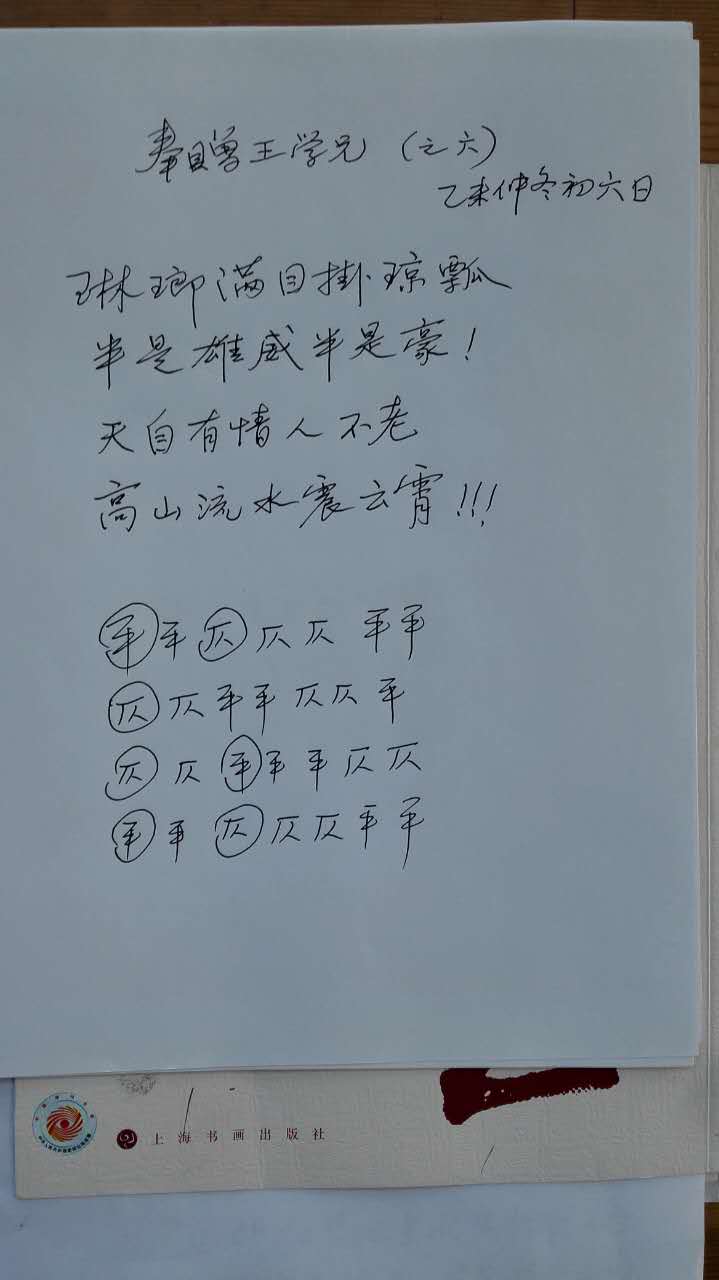 奉赠王学兄（之六）
乙未仲冬初六日
琳瑯满目掛琼瓢
半是雄威半是豪！
天自有情人不老
高山流水震云霄!!!
平平仄仄仄平平
仄仄平平仄仄平
仄仄平平平仄仄
平平仄仄仄平平
上海书画出版社